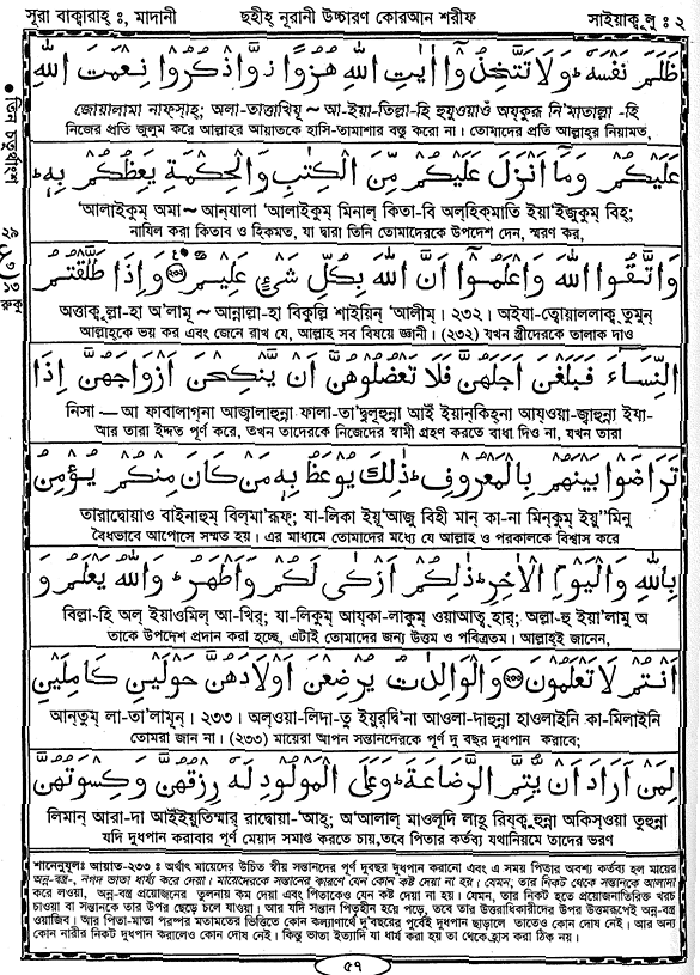 সূরা বাক্বারাহ্ ঃ, মাদানী ছহীহ্ নূরানী উচ্চারণ কোরআন শরীফ সাইয়াক্বূলু ঃ ২
ظَلَمَ نَفْسَهٗ ؕ وَلَا تَتَّخِذُوْۤا اٰيٰتِ اللّٰهِ هُزُوًا ز وَّاذْكُرُوْا نِعْمَتَ اللّٰهِ
জোয়ালামা নাফ্সাহ্; অলা-তাত্তাখিযূ ~ আ-ইয়া-তিল্লা-হি হুযুওয়াওঁ অয্কুরূ নি'মাতাল্লা -হি
নিজের প্রতি জুলুম করে আল্লাহর আয়াতকে হাসি-তামাশার বস্তু করো না। তোমাদের প্রতি আল্লাহর নিয়ামত,
عَلَيْكُمْ وَمَاۤ اَنْزَلَ عَلَيْكُمْ مِّنَ الْكِتٰبِ وَالْحِكْمَةِ يَعِظُكُمْ بِهٖ ؕ
'আলাইকুম্ অমা ~ আন্যালা 'আলাইকুম্ মিনাল্ কিতা-বি অল্হিক্মাতি ইয়া'ইজুকুম্ বিহ্;
নাযিল করা কিতাব ও হিকমত, যা দ্বারা তিনি তোমাদেরকে উপদেশ দেন, স্মরণ কর,
وَاتَّقُوا اللّٰهَ وَاعْلَمُوْۤا اَنَّ اللّٰهَ بِكُلِّ شَيْءٍ عَلِيْمٌ وَاِذَا طَلَّقْتُمُ
অত্তাকুল্লা-হা অ'লামূ ~ আন্নাল্লা-হা বিকুল্লি শাইয়িন্ 'আলীম্। ২৩২। অইযা-ত্বোয়াল্লাক্ব্ তুমুন্
আল্লাহ্কে ভয় কর এবং জেনে রাখ যে, আল্লাহ্ সব বিষয়ে জ্ঞানী। (২৩২) যখন স্ত্রীদেরকে তালাক দাও
النِّسَآءَ فَبَلَغْنَ اَجَلَهُنَّ فَلَا تَعْضُلُوْهُنَّ اَنْ يَّنْكِحْنَ اَزْوَاجَهُنَّ اِذَا
নিসা — আ ফাবালাগ্না আজ্বালাহুন্না ফালা-তা'দ্বুলূহুন্না আইঁ ইয়ান্কিহ্না আয্ওয়া-জ্বাহুন্না ইযা-
আর তারা ইদ্দত পূর্ণ করে, তখন তাদেরকে নিজেদের স্বামী গ্রহণ করতে বাধা দিও না, যখন তারা
تَرَاضَوْا بَيْنَهُمْ بِالْمَعْرُوْفِ ؕ ذٰلِكَ يُوْعَظُ بِهٖ مَنْ كَانَ مِنْكُمْ يُؤْمِنُ
তারাদ্বোয়াও বাইনাহুম্ বিল্মা'রূফ্; যা-লিকা ইয়ূ'আজু বিহী মান্ কা-না মিন্কুম্ ইয়ু''মিনু
বৈধভাবে আপোসে সম্মত হয়। এর মাধ্যমে তোমাদের মধ্যে যে আল্লাহ ও পরকালকে বিশ্বাস করে
بِاللّٰهِ وَالْيَوْمِ الْاٰخِرِ ؕ ذٰلِكُمْ اَزْكٰى لَكُمْ وَاَطْهَرُ ؕ وَاللّٰهُ يَعْلَمُ وَ
বিল্লা-হি অল্ ইয়াওমিল্ আ-খির্; যা-লিকুম্ আয্কা-লাকুম্ ওয়াআত্ব্ হার্; অল্লা-হু ইয়া'লামু অ
তাকে উপদেশ প্রদান করা হচ্ছে, এটাই তোমাদের জন্য উত্তম ও পবিত্রতম। আল্লাহ্ই জানেন,
اَنْتُمْ لَا تَعْلَمُوْنَ وَالْوَالِدٰتُ يُرْضِعْنَ اَوْلَادَهُنَّ حَوْلَيْنِ كَامِلَيْنِ
আন্তুম্ লা-তা'লামূন্। ২৩৩। অল্ওয়া-লিদা-তু ইয়ুর্দ্বি'না আওলা-দাহুন্না হাওলাইনি কা-মিলাইনি
তোমরা জান না। (২৩৩) মায়েরা আপন সন্তানদেরকে পূর্ণ দু বছর দুধপান করাবে;
لِمَنْ اَرَادَ اَنْ يُّتِمَّ الرَّضَاعَةَ ؕ وَعَلَى الْمَوْلُوْدِ لَهٗ رِزْقُهُنَّ وَكِسْوَتُهُنَّ
লিমান্ আরা-দা আইঁইয়ুতিম্মার্ রাদ্বোয়া-'আহ্; অ'আলাল্ মাওলূদি লাহূ রিয্কু্হুন্না অকিস্ওয়া তুহুন্না
যদি দুধপান করাবার পূর্ণ মেয়াদ সমাপ্ত করতে চায়,তবে পিতার কর্তব্য যথানিয়মে তাদের ভরণ
শানেনুযূলঃ আয়াত-২৩৩ ঃ অর্থাৎ মায়েদের উচিত স্বীয় সন্তানদের পূর্ণ দুবছর দুধপান করানো এবং এ সময় পিতার অবশ্য কর্তব্য হল মায়ের
অন্ন-বস্ত্র-, নগদ ভাতা ধার্য্য করে দেয়া। মায়েদেরকে সন্তানের কারণে যেন কোন কষ্ট দেয়া না হয়। যেমন; তার নিকট থেকে সন্তানকে আলাদা
করে লওয়া, অন্ন-বস্ত্র প্রয়োজনের তুলনায় কম দেয়া এবং পিতাকেও যেন কষ্ট দেয়া না হয়। যেমন, তার নিকট হতে প্রয়োজনাতিরিক্ত খরচ
চাওয়া বা সন্তানকে তার উপর ছেড়ে চলে যাওয়া। আর যদি সন্তান পিতৃহীন হয়ে পড়ে, তবে তার উত্তরাধিকারীদের উপর উত্তমরূপেই অন্ন-বস্ত্র
ওয়াজিব। আর পিতা-মাতা পরস্পর মতামতের ভিত্তিতে কোন কল্যাণার্থে দু'বছরের পূর্বেই দুধপান ছাড়ালে তাতেও কোন দোষ নেই। আর অন্য
কোন নারীর নিকট দুধপান করালেও কোন দোষ নেই। কিন্তু ভাতা ইত্যাদি যা ধার্য করা হয় তা থেকে হ্রাস করা ঠিক নয়।
৫৭